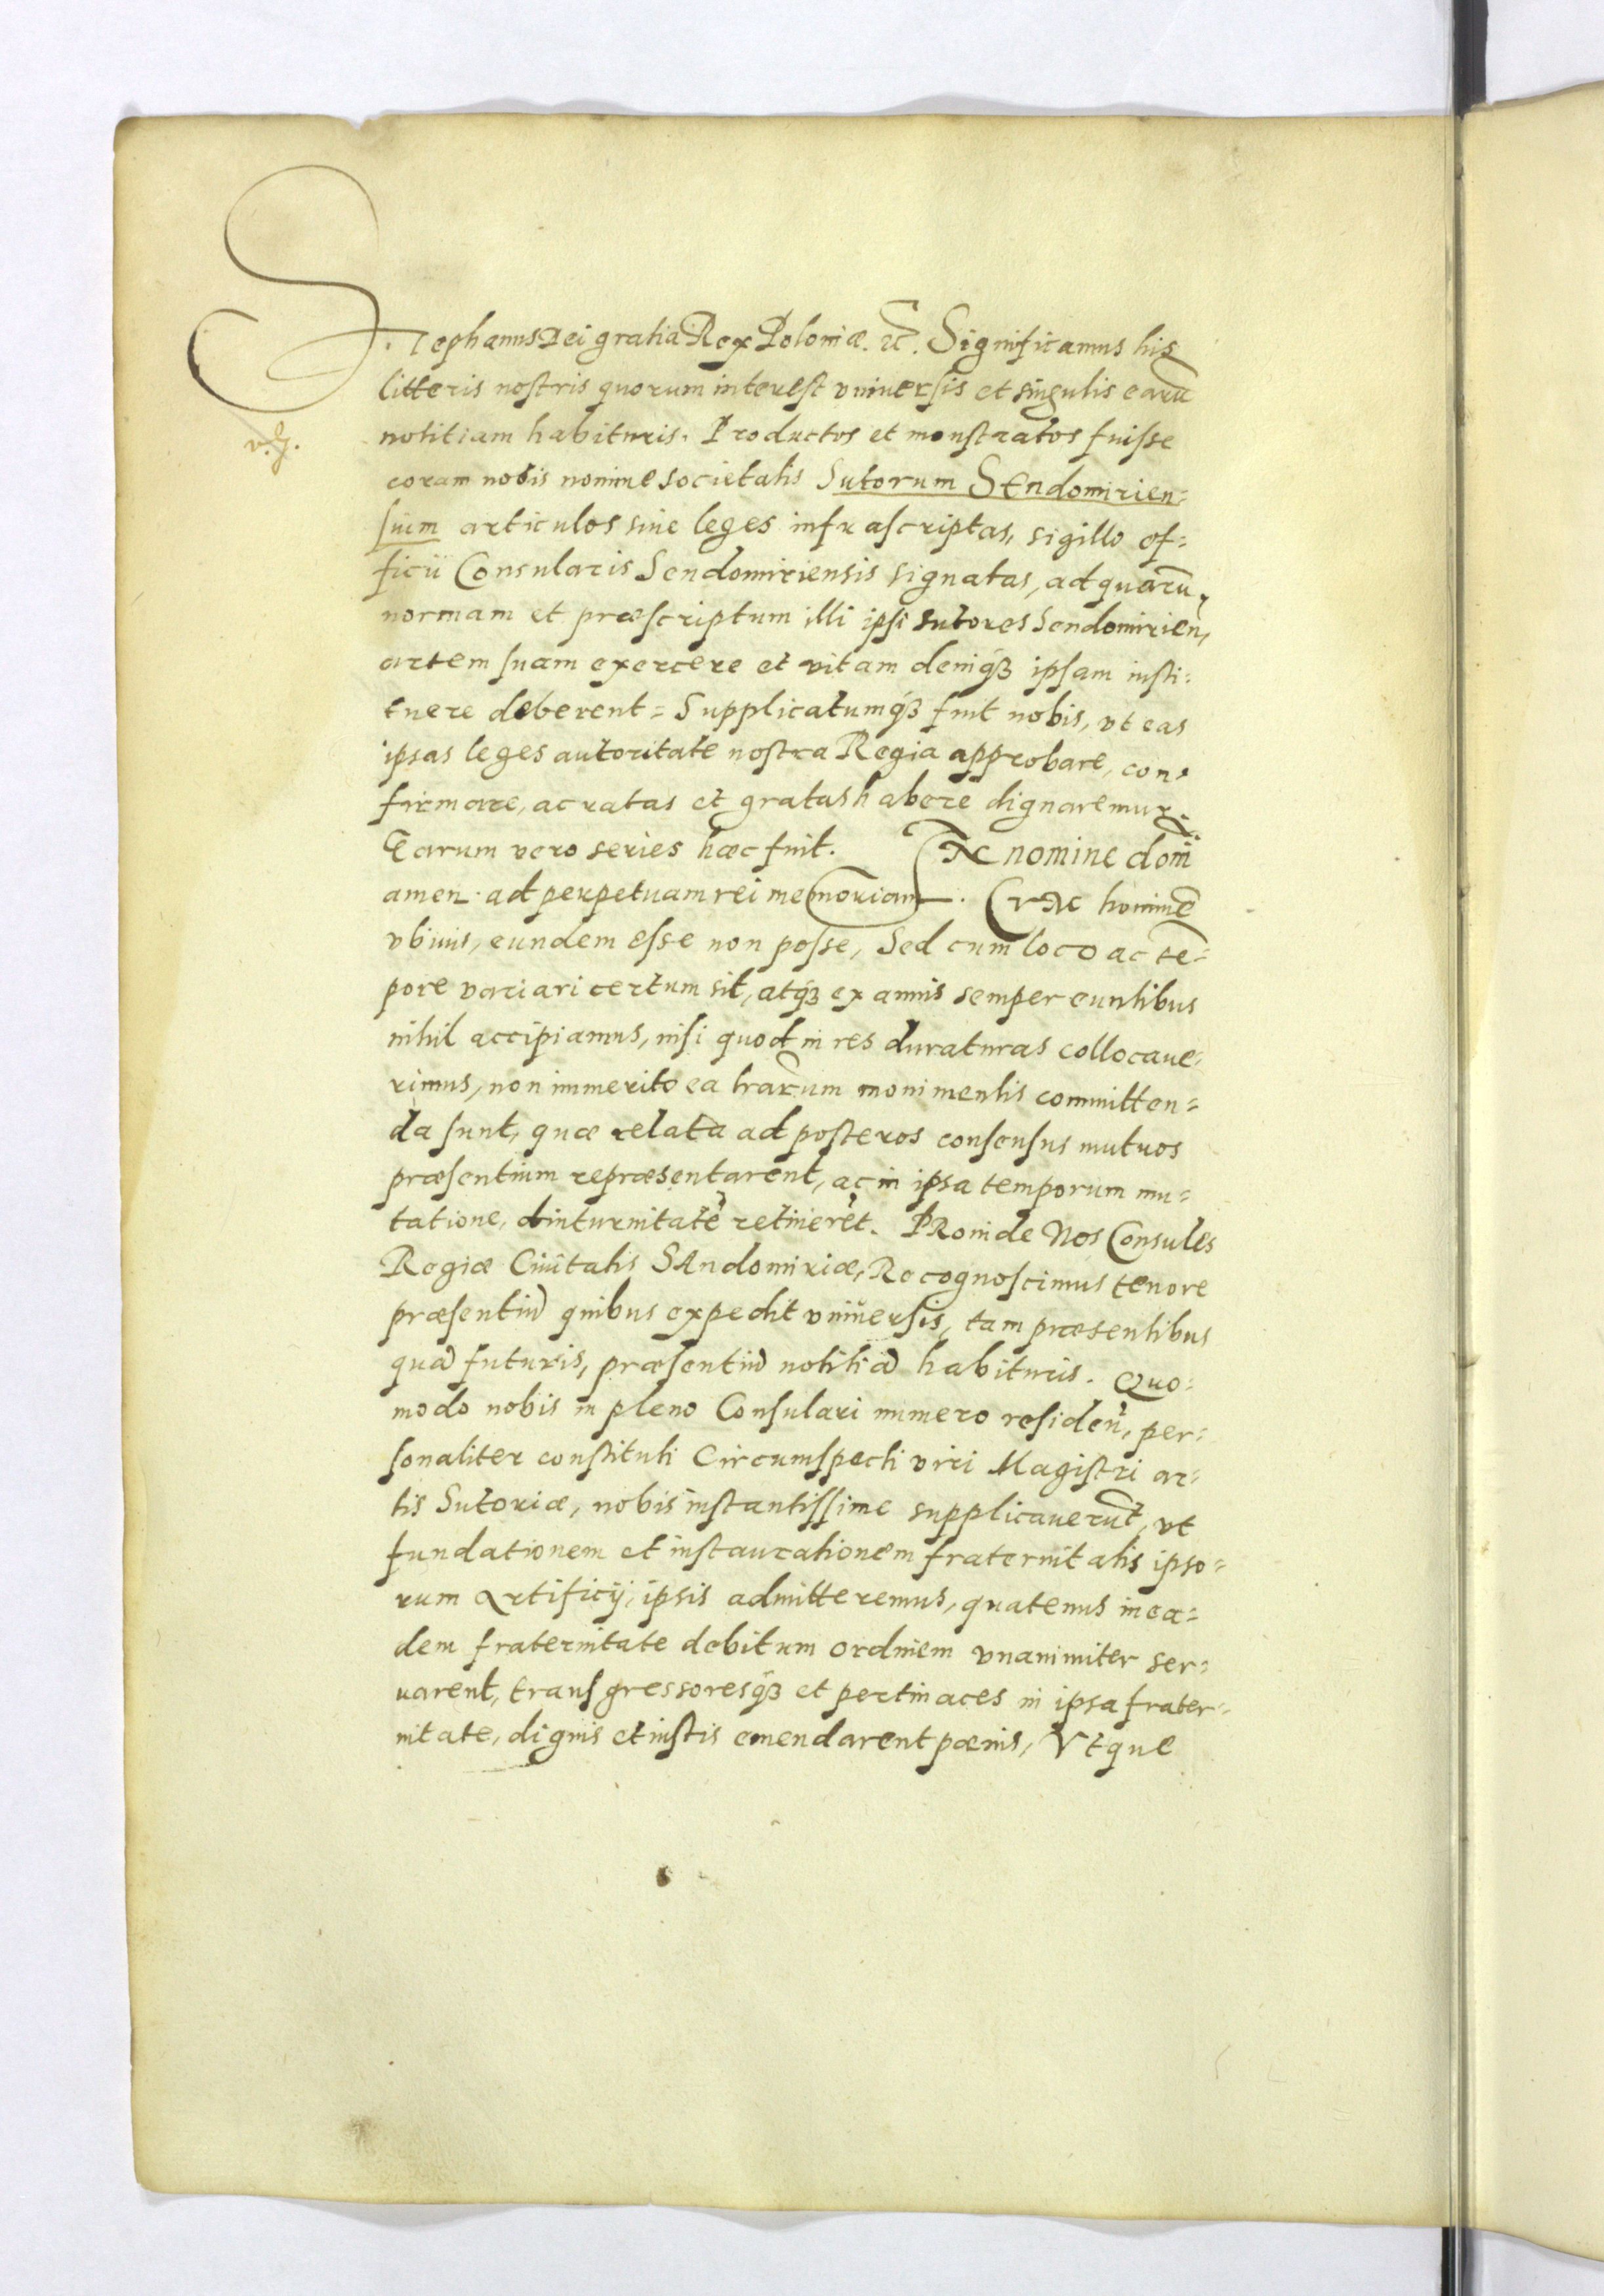 Stephanus Dei gratia Rex Poloniæ. etc̃. Significamus his
litteris nostris quorum interest vniuersis et singulis earũ
notitiam habituris. Productos et monstratos fuisse
v. g.
coram nobis nomine societatis Sutorum SEndomirien=
sium articulos siue leges infrascriptas, sigillo of=
ficii Consularis Sendomiriensis signatas, ad quarũ
normam et præscriptum illi ipsi sutores Sendomirien,
artem suam exercere et vitam deniq́ꝫ ipsam insti=
tuere deberent = Supplicatumq́ꝫ fuit nobis, vt eas
ipsas leges autoritate nostra Regia approbare, con=
firmare, ac ratas et gratas habere dignaremur.
Earum vero series hæc fuit. IN nomine dom̃
amen. ad perpetuam rei memoriam. CVM hominẽ
vbiuis, eundem esse non posse, Sed cum loco ac tẽ=
pore variari certum sit, atq́ꝫ ex annis semper euntibus
nihil accipiamus, nisi quod in res duraturas collocaue=
rimus, non immerito ea lrãrum monimentis committen=
da sunt, quæ relata ad posteros consensus mutuos
præsentium repræsentarent, ac in ipsa temporum mu=
tatione, diuturnitatẽ retinerẽt. PRoinde Nos Consules
Regiæ Ciuitatis SAndomiriæ, Recognoscimus tenore
præsentiũ quibus expedit vniuersis, tam præsentibus
quã futuris, præsentiũ notitiã habituris. Quo=
modo nobis in pleno Consulari numero residen̄, per=
sonaliter constituti Circumspecti viri Magistri ar=
tis Sutoriæ, nobis instantissime supplicauerũt, vt
fundationem et instaurationem fraternitatis ipso=
rum Artificij, ipsis admitteremus, quatenus in ea=
dem fraternitate debitum ordinem vnanimiter ser=
uarent, transgressoresq́ꝫ et pertinaces in ipsa frater=
nitate, dignis et iustis emendarent pœnis, Vtque